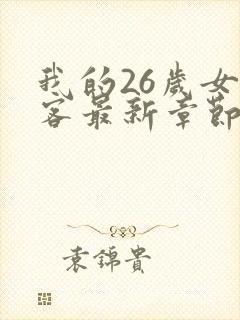 我的26歲女
客最新章節
袁錦貴